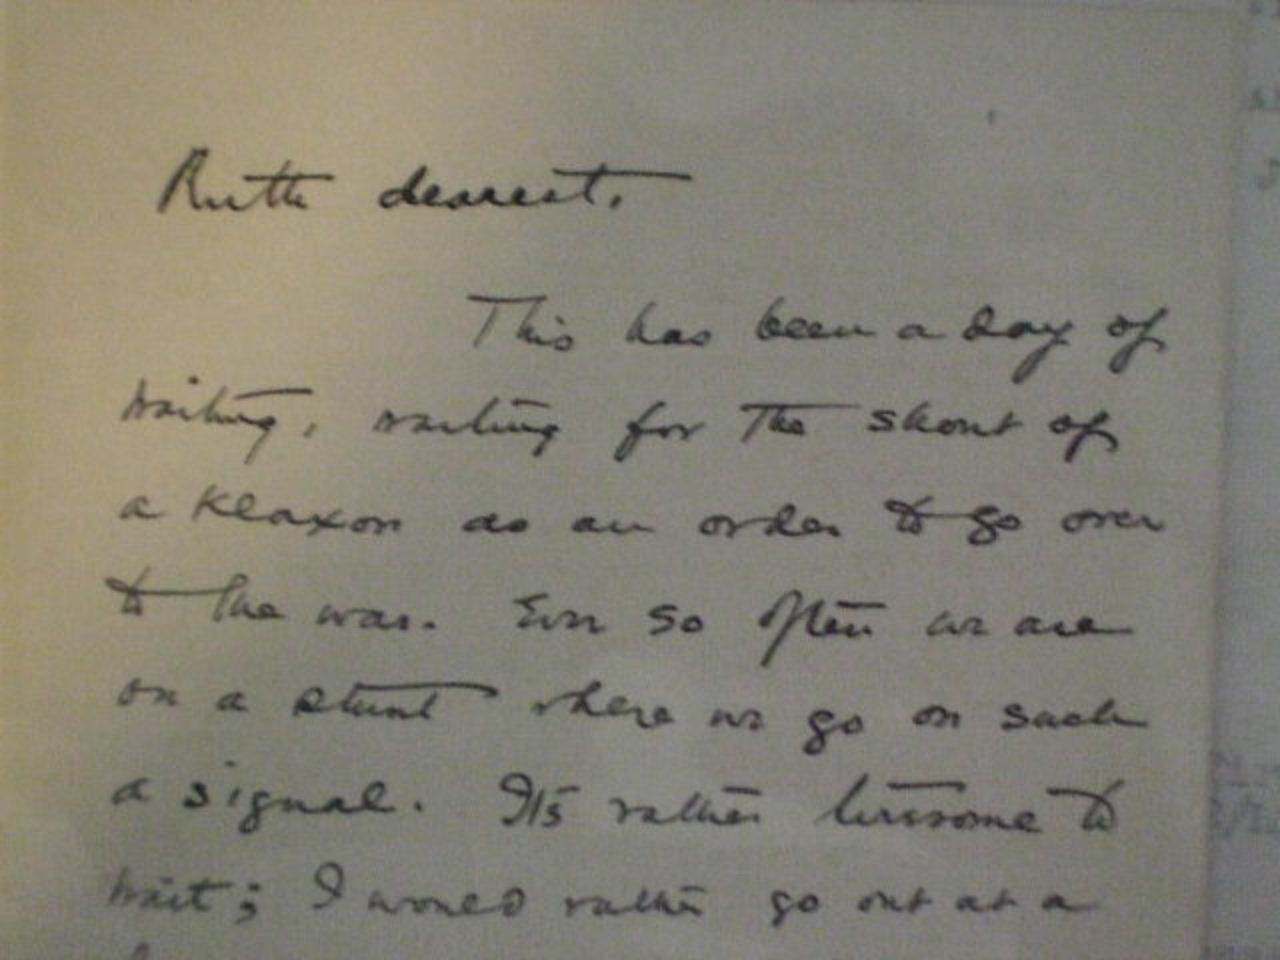 Ruth dearest,
This has been a day of
waiting, waiting for the shout of
a Klaxon as an order to go over
to the war. Ever so often we are
on a stunt where we go on such
a signal. Its rather tiresome to
wait; I would rather go out at a